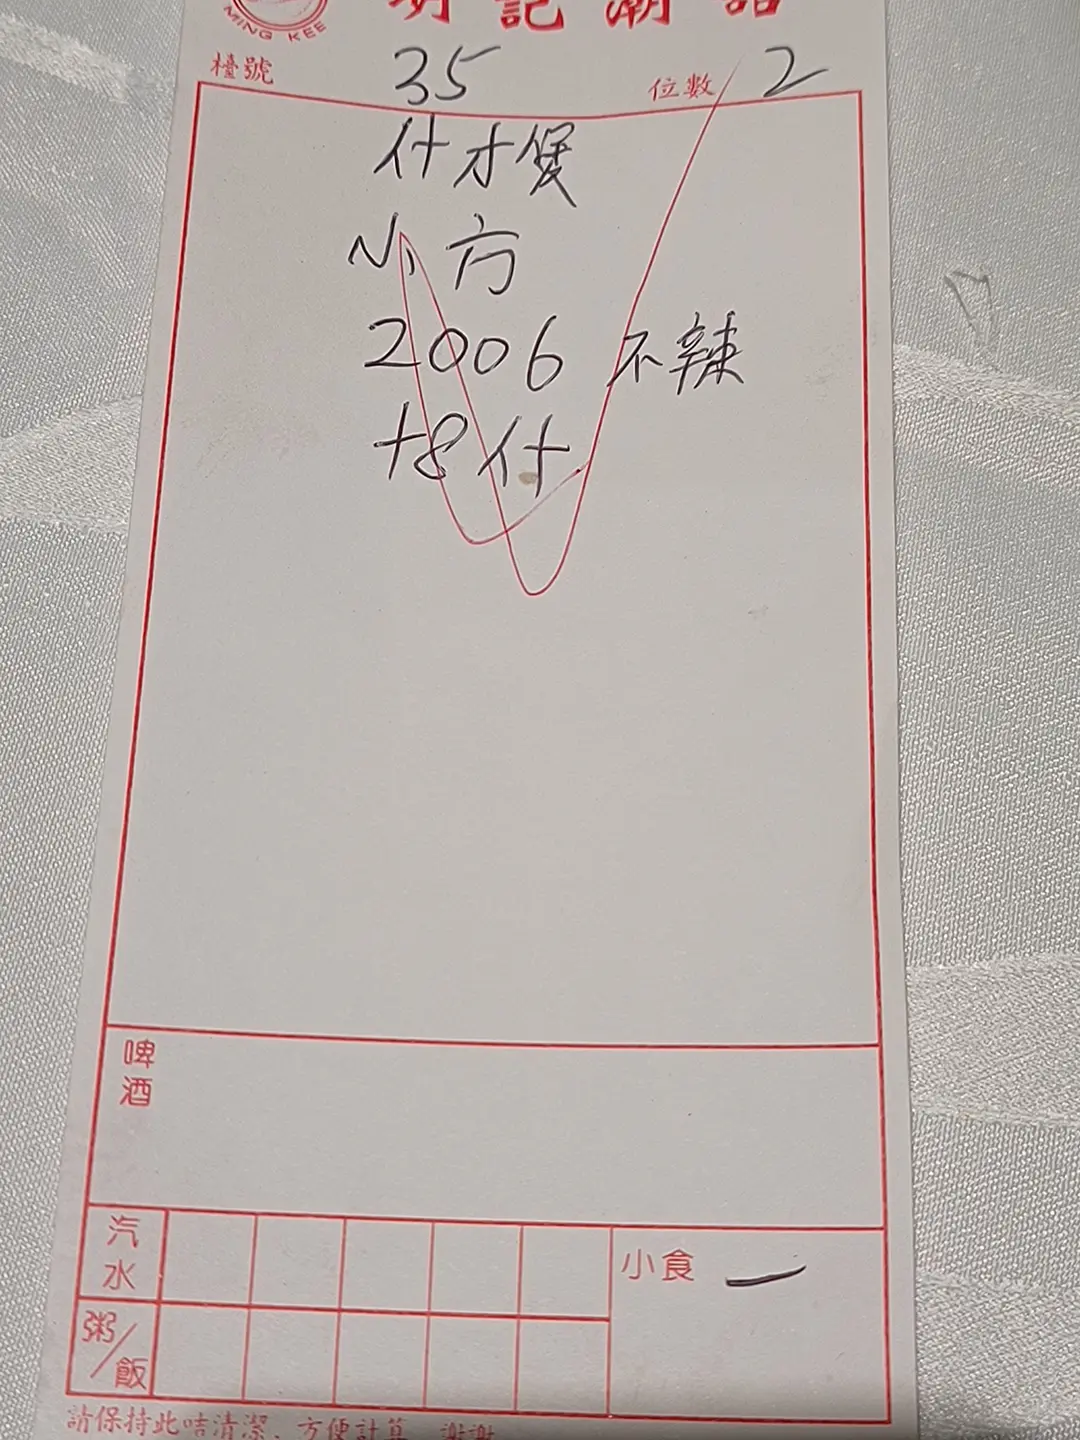 MING KEE
明記潮語
檯號 35 位數 2
什才煲
小方
2006 不辣
+8什
啤酒
汽水
小食 一
粥/飯
請保持此咭清潔、方便計算、謝謝